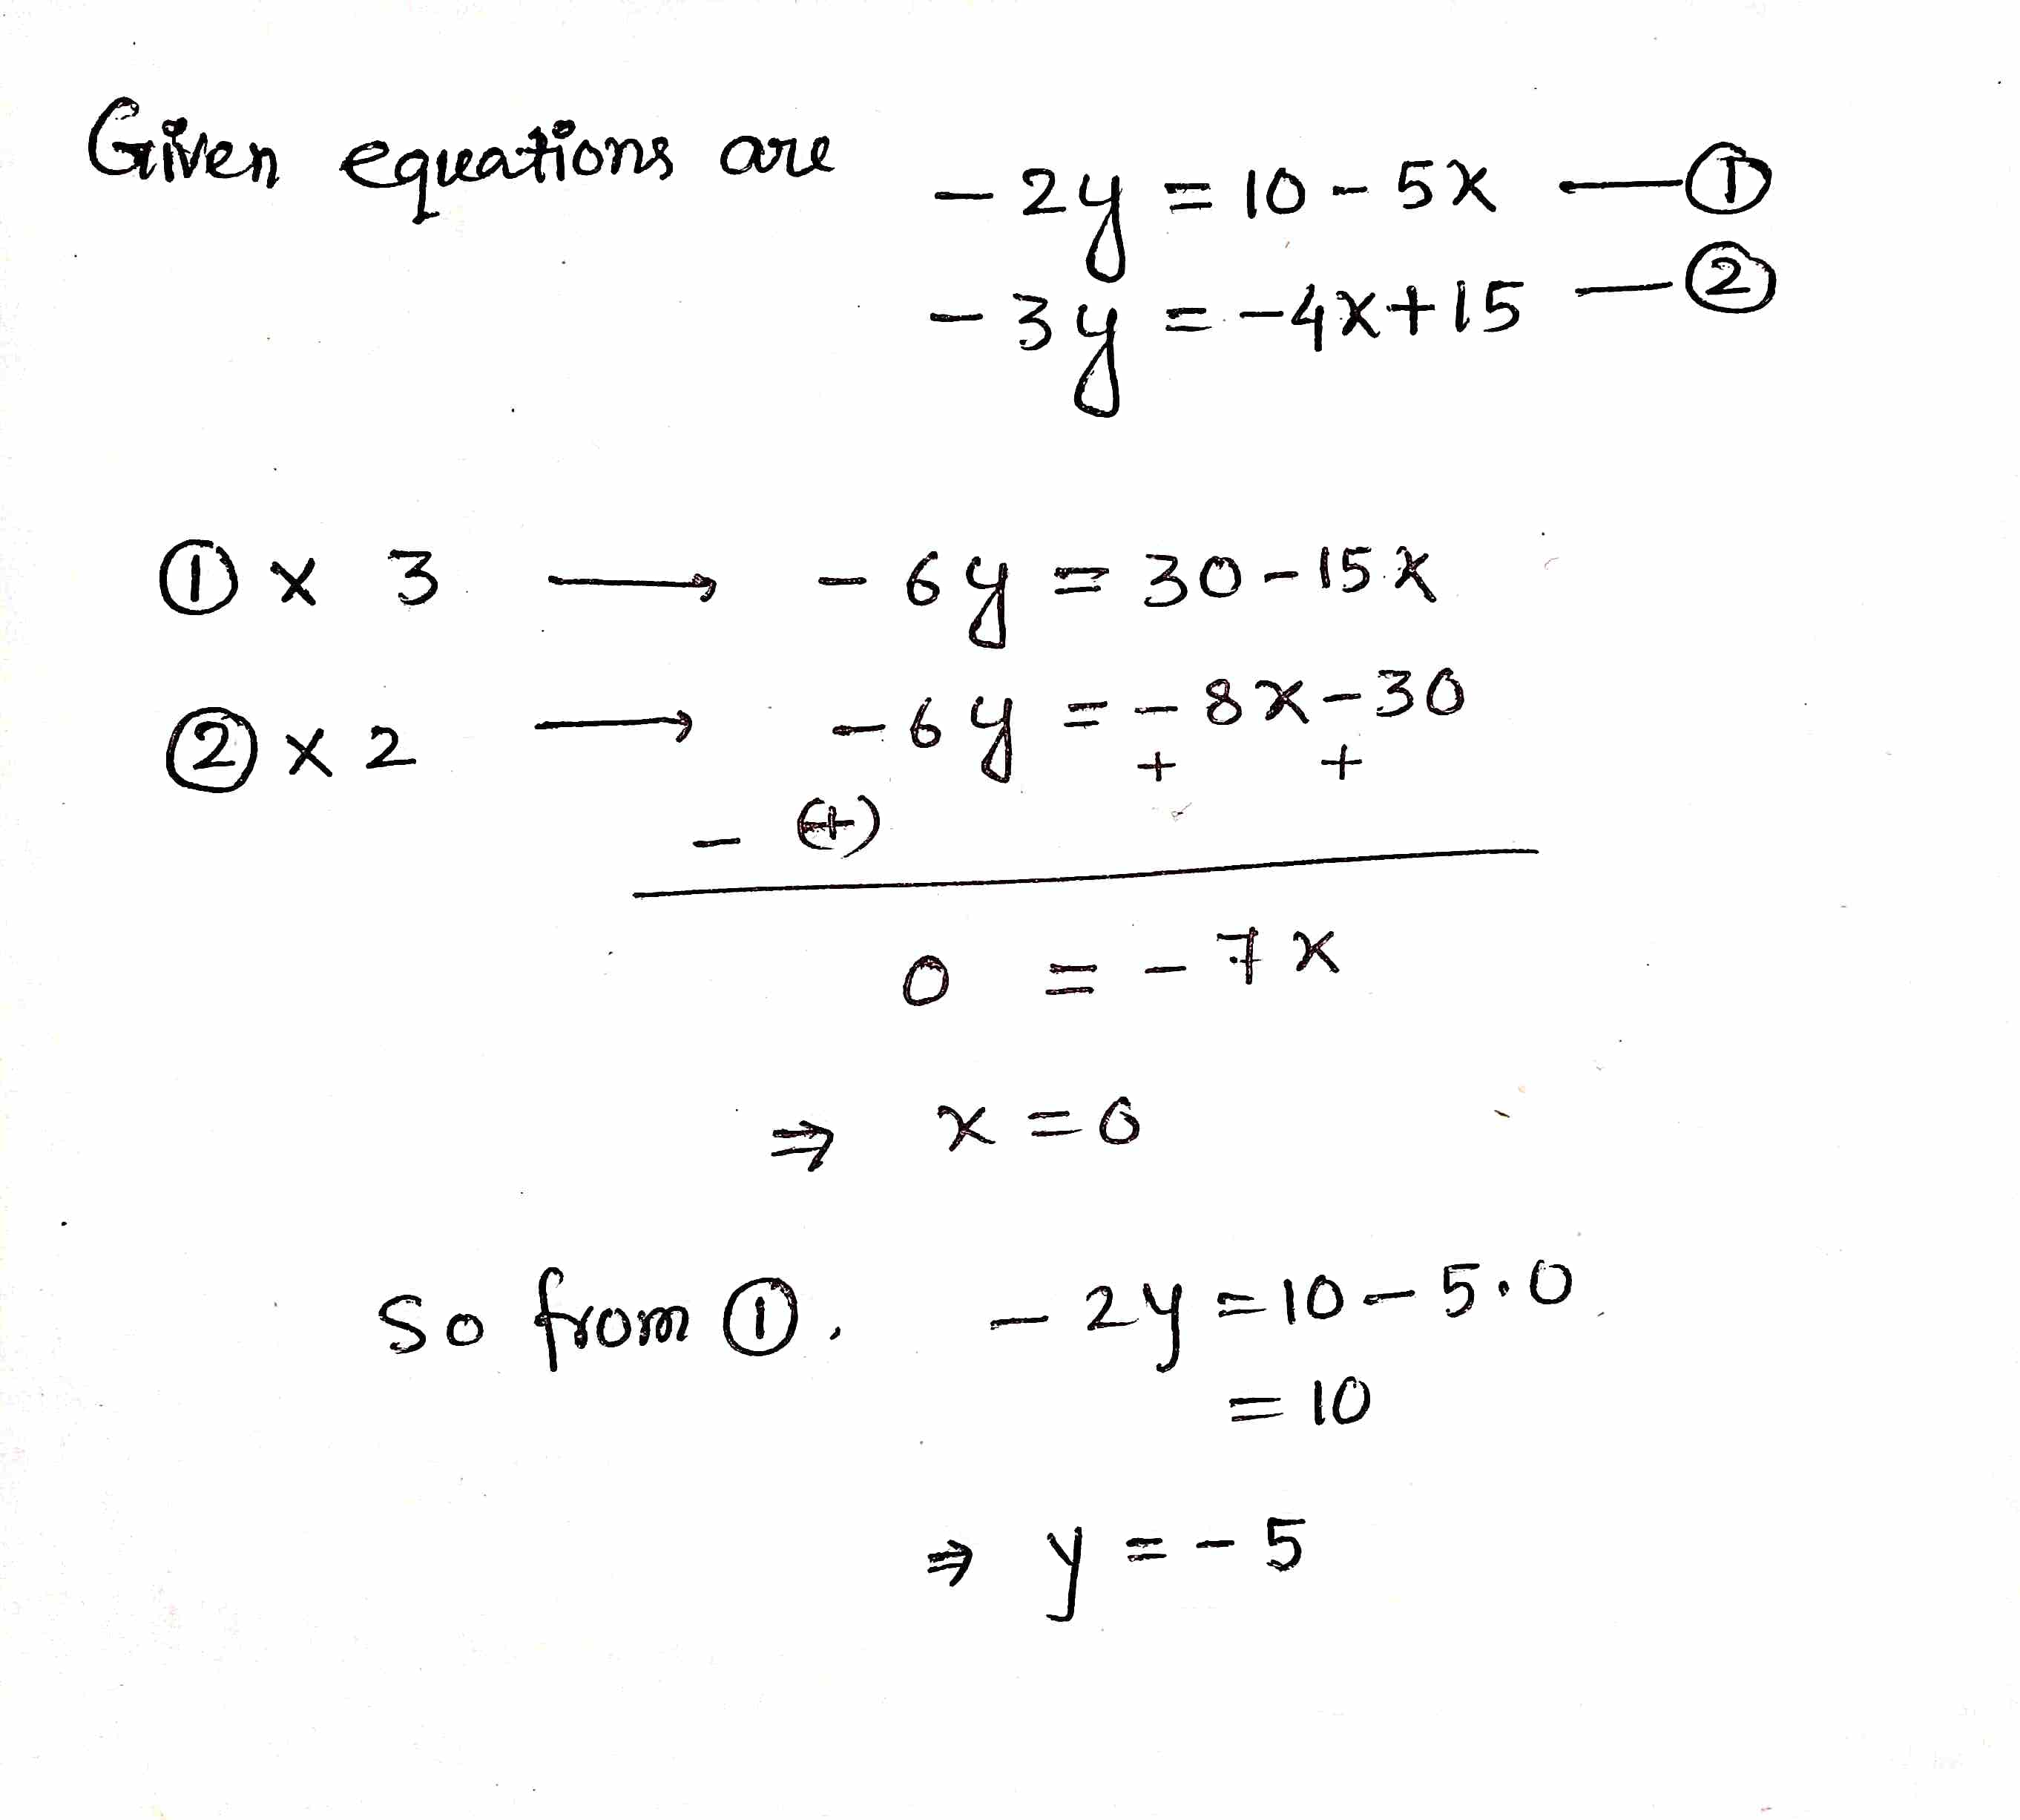 Given equations are -2y = 10-5x —①
-3y = -4x+15 —②
① x 3 → -6y = 30-15x
② x 2 → -6y = -8x-30
- (+) + +
0 = -7x
⇒ x=0
So from ①, -2y=10-5.0
=10
⇒ y=-5